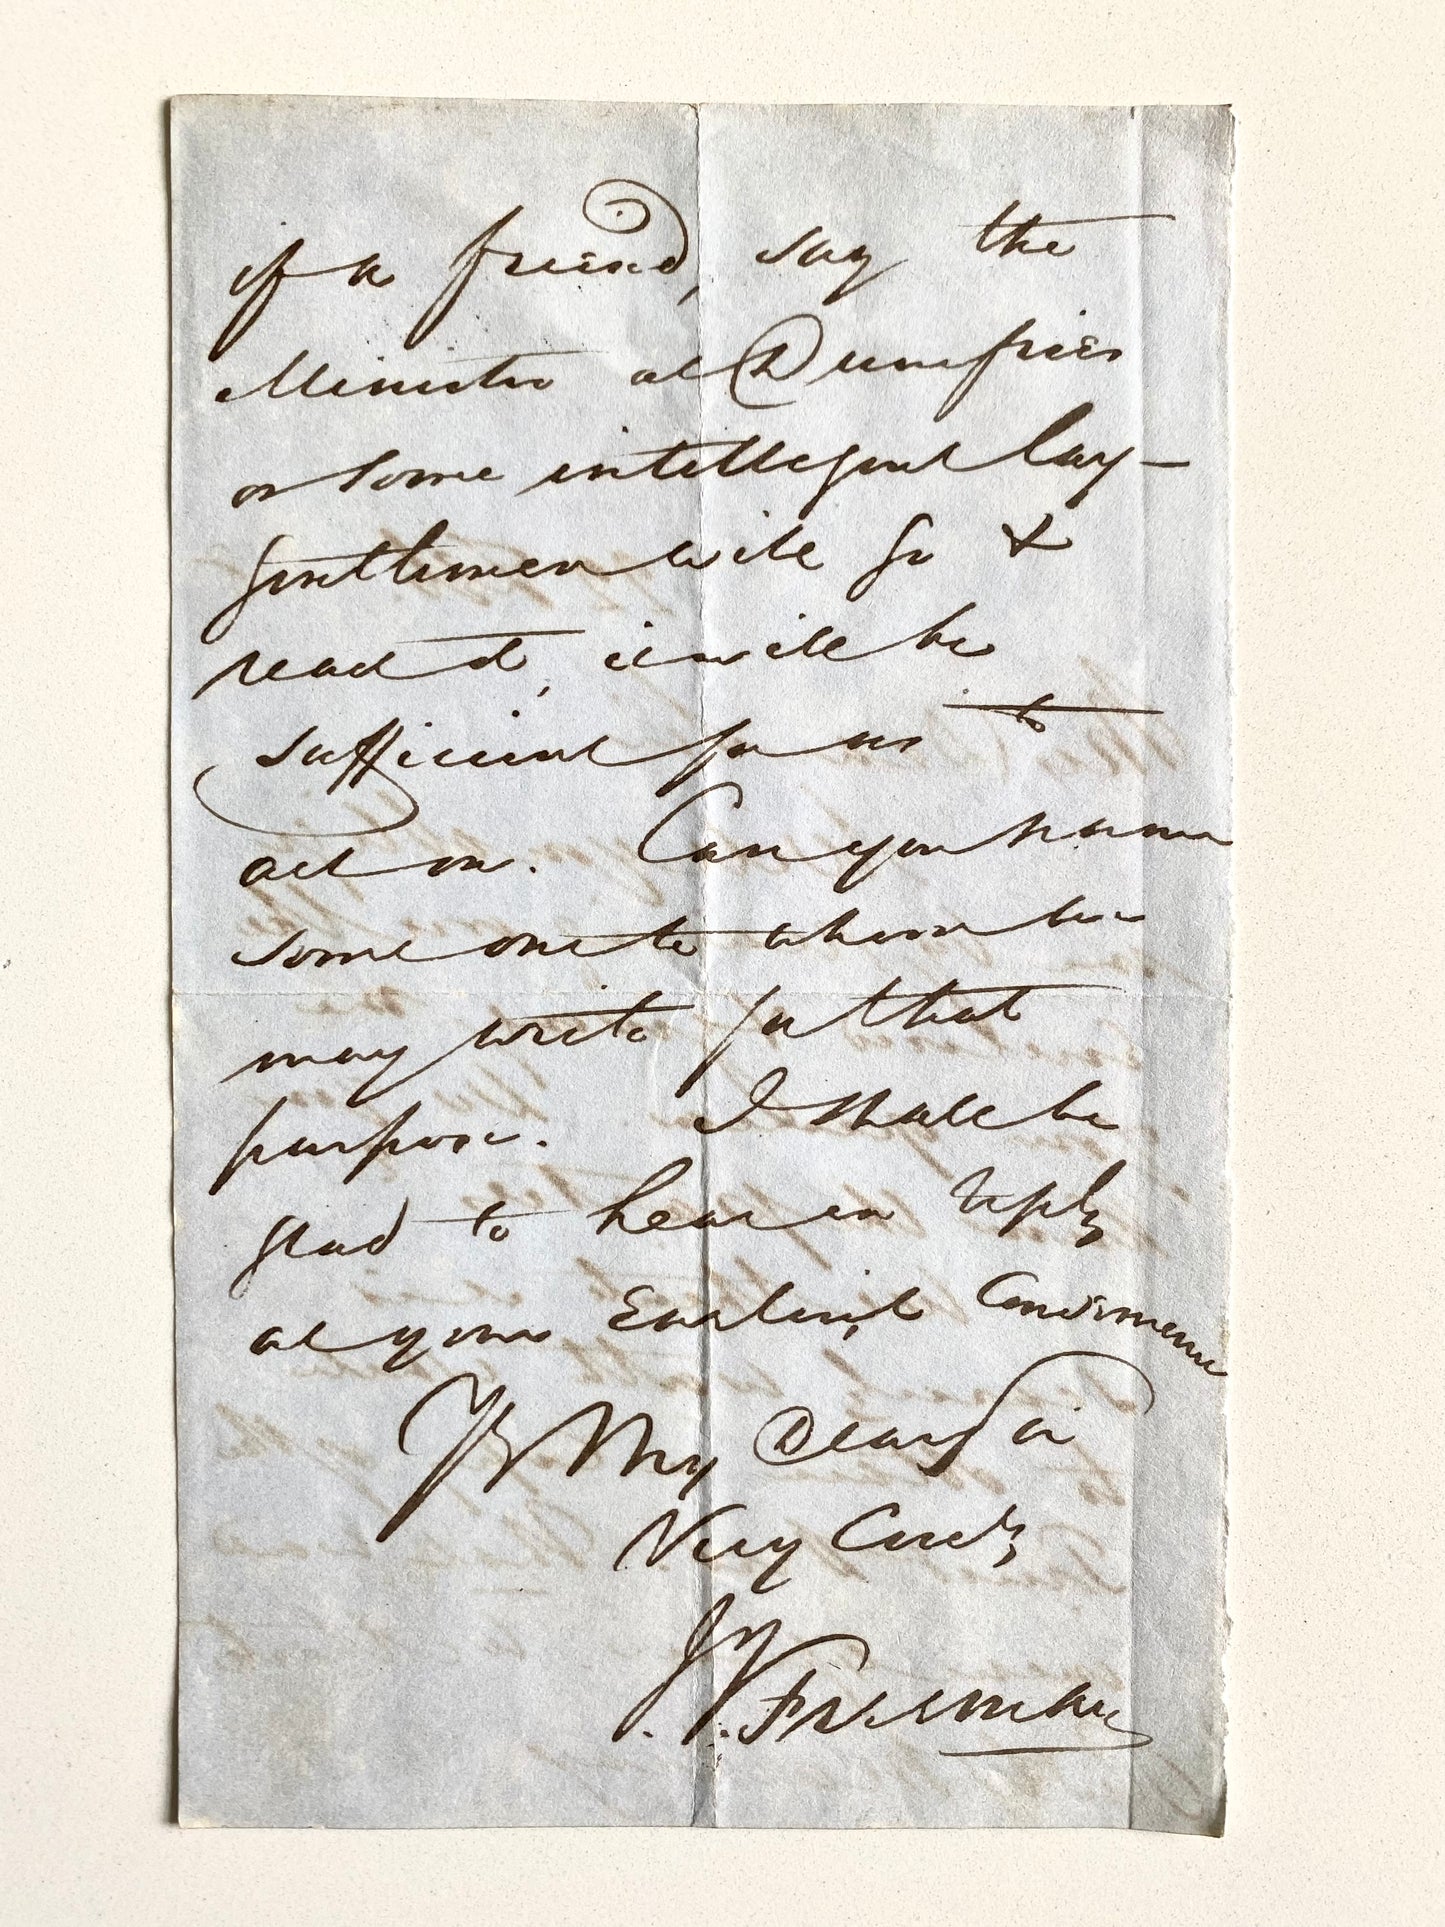 if a friend, say the
Minister at Dumfries
or some intelligent lay-
gentlemen will go &
read it, it will be
sufficient for us to
act on. Can you name
some one to whom we
may write for that
purpose. I shall be
glad to hear in reply
at your Earliest Convenience
My Dear Sir
Very Cordy
Freeman